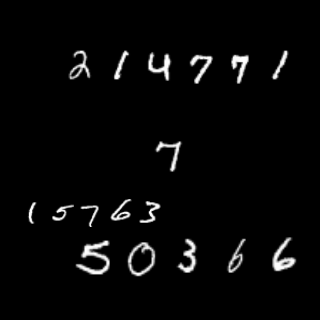 214771
7
15763
50366